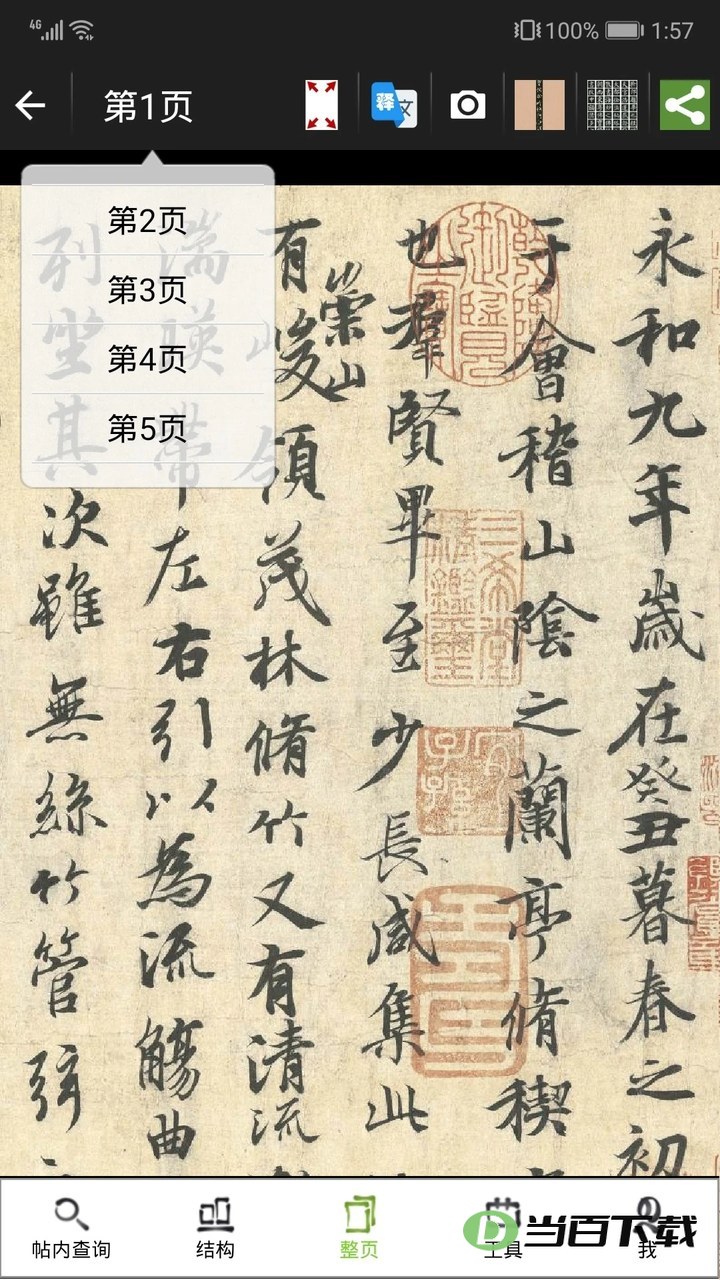 4G 100% 1:57
第1页
释 文
第2页
第3页
第4页
第5页
永和九年歲在癸丑暮春之初
于會稽山陰之蘭亭脩稧
也羣賢畢至少長咸集此
有崇山峻領茂林脩竹又有清流
湍暎帶左右引以為流觴曲
列坐其次雖無絲竹管弦
三希堂精鑑璽
宜子孫
帖内查询
结构
整页
工具
我
当百下载